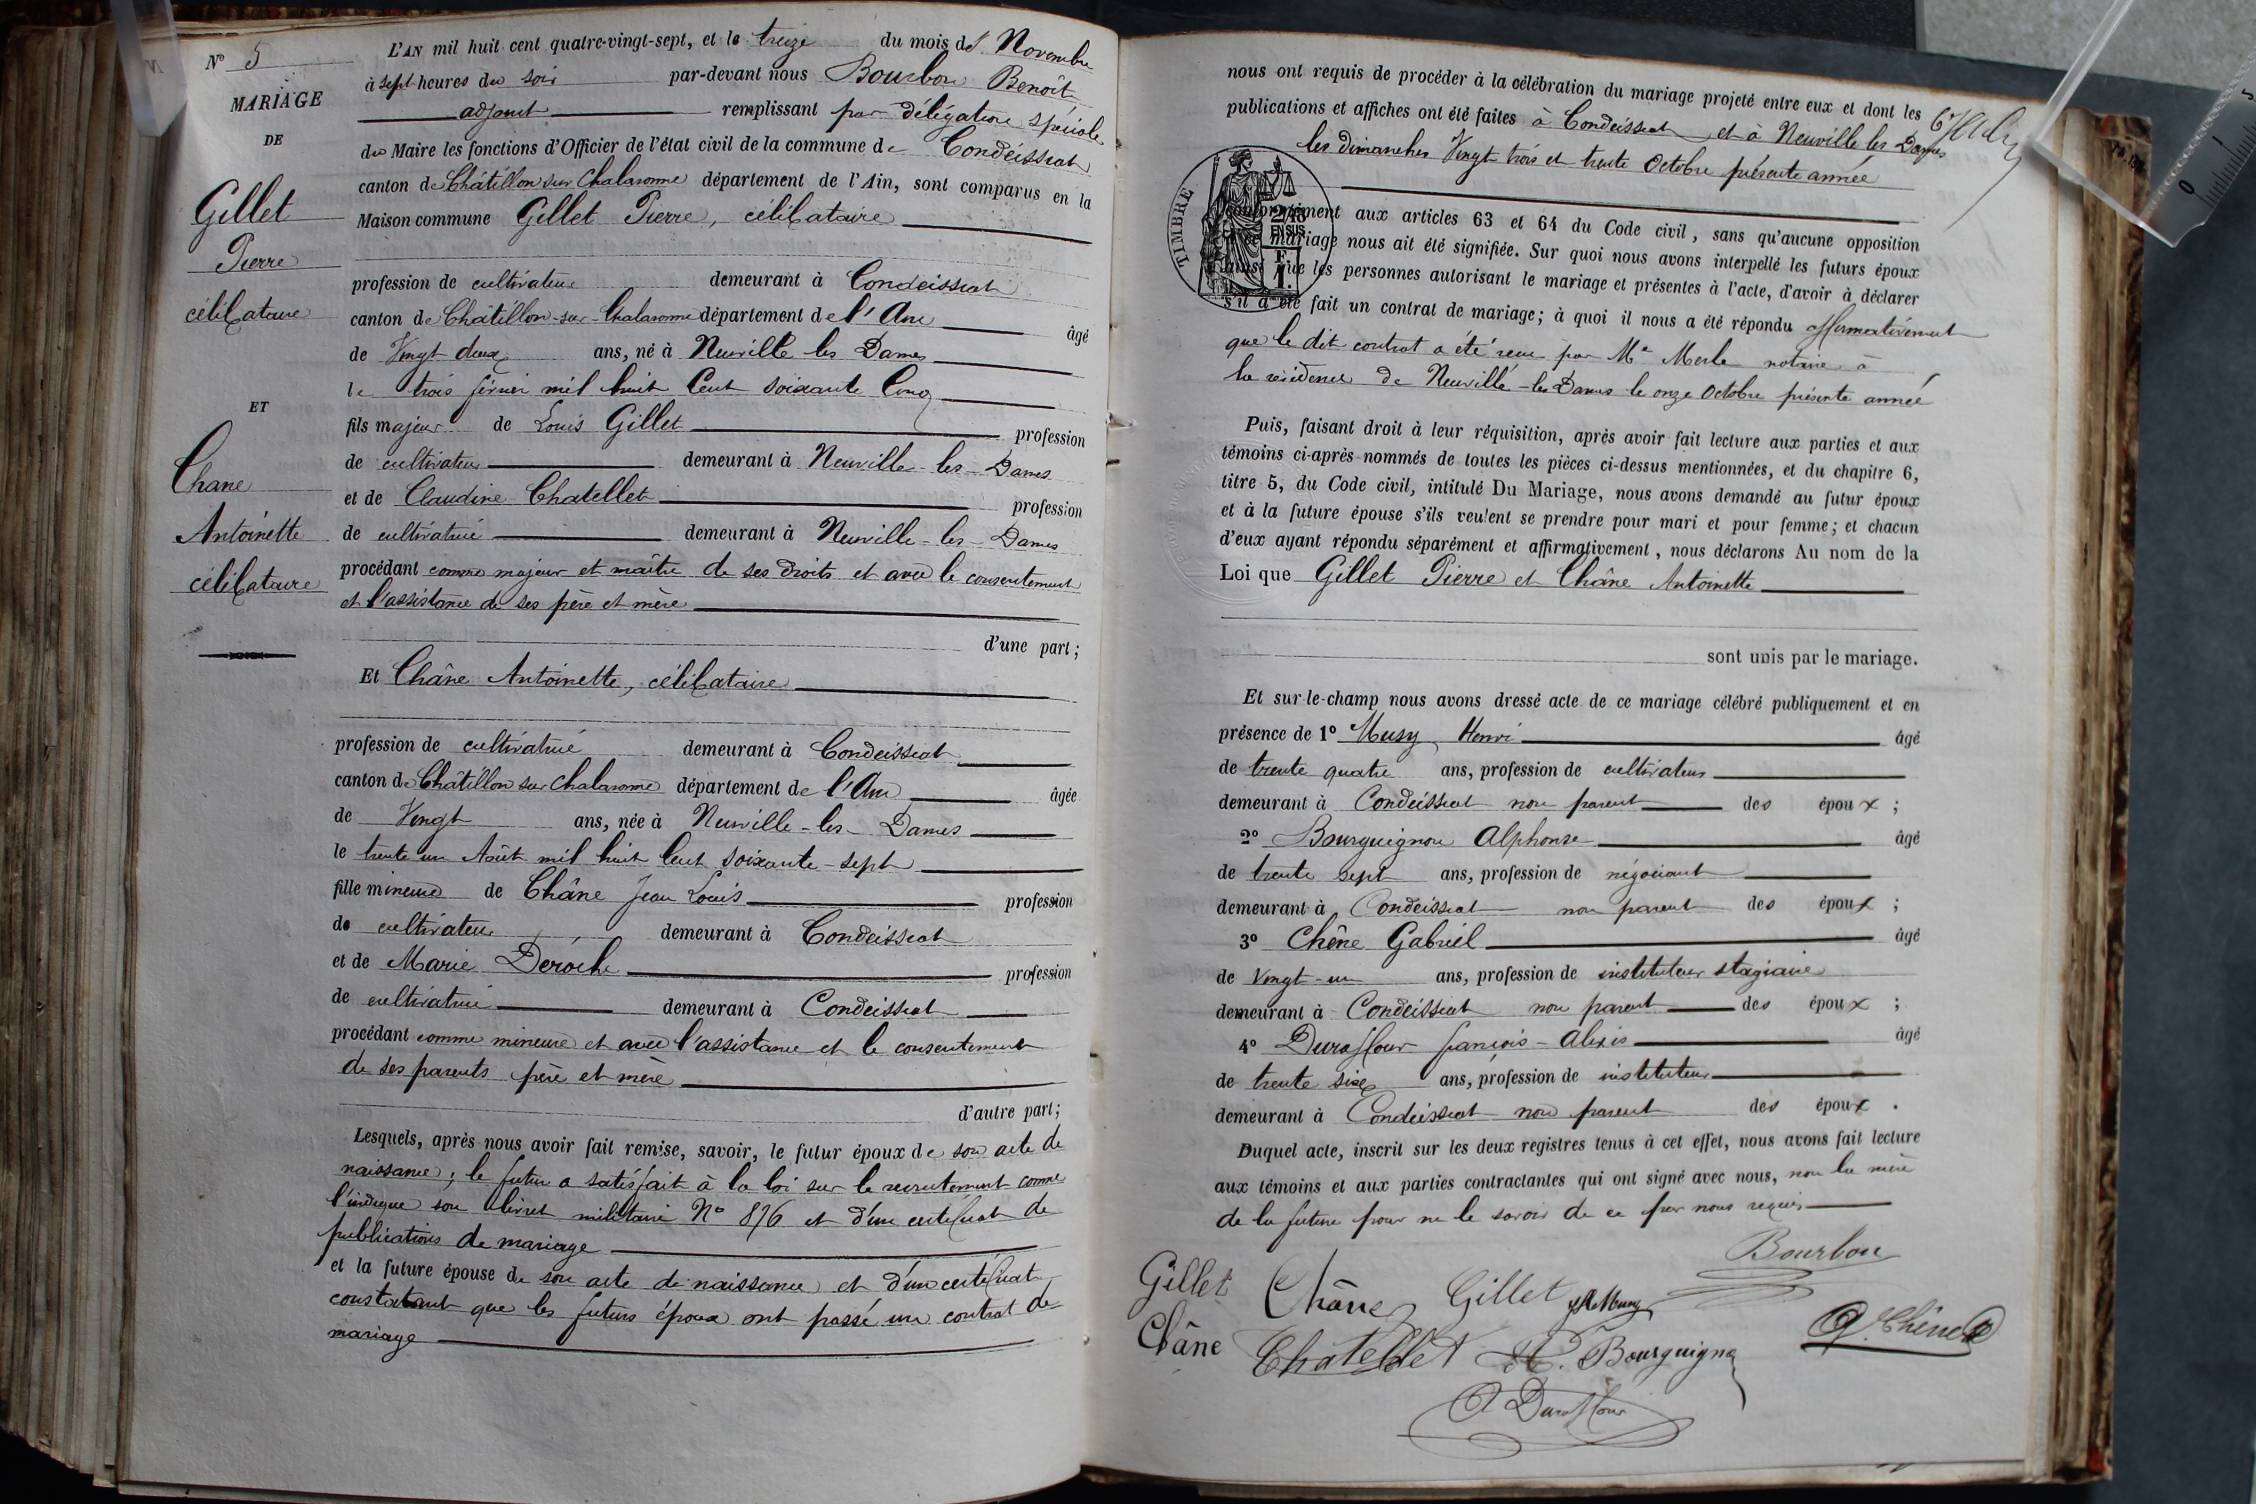 N° 5
MARIAGE
DE
Gillet
Pierre
célibataire
ET
Chane
Antoinette
célibataire
L'AN mil huit cent quatre-vingt-sept, et le treize du mois de Novembre
à sept heures du soir par-devant nous Bourbon Benoît
adjoint remplissant par délégation spéciale
du Maire les fonctions d'Officier de l'état civil de la commune de Condeissiat
canton de Châtillon sur Chalaronne département de l'Ain, sont comparus en la
Maison commune Gillet Pierre, célibataire
profession de cultivateur demeurant à Condeissiat
canton de Châtillon-sur-Chalaronne département de l'Ain âgé
de Vingt deux ans, né à Neuville les Dames
le trois février mil huit Cent soixante Cinq
fils majeur de Louis Gillet profession
de cultivateur demeurant à Neuville-les-Dames
et de Claudine Chatellet profession
de cultivatrice demeurant à Neuville-les-Dames
procédant comme majeur et maître de ses droits et avec le consentement
et l'assistance de ses père et mère
d'une part ;
Et Châne Antoinette, célibataire
profession de cultivatrice demeurant à Condeissiat
canton de Châtillon sur Chalaronne département de l'Ain âgée
de Vingt ans, née à Neuville-les-Dames
le trente un Août mil huit Cent soixante-sept
fille mineure de Châne Jean Louis profession
de cultivateur demeurant à Condeissiat
et de Marie Déroche profession
de cultivatrice demeurant à Condeissiat
procédant comme mineure et avec l'assistance et le consentement
de ses parents père et mère
d'autre part ;
Lesquels, après nous avoir fait remise, savoir, le futur époux de son acte de
naissance ; le futur a satisfait à la loi sur le recrutement comme
l'indique son livret militaire N° 876 et d'un certificat de
publications de mariage
et la future épouse de son acte de naissance et d'un certificat
constatant que les futurs époux ont passé un contrat de
mariage
nous ont requis de procéder à la célébration du mariage projeté entre eux et dont les
publications et affiches ont été faites à Condeissiat et à Neuville les Dames
les dimanches Vingt trois et trente Octobre présente année
TIMBRE
2/10
EN SUS
conformément aux articles 63 et 64 du Code civil, sans qu'aucune opposition
mariage nous ait été signifiée. Sur quoi nous avons interpellé les futurs époux
ainsi que les personnes autorisant le mariage et présentes à l'acte, d'avoir à déclarer
s'il a été fait un contrat de mariage ; à quoi il nous a été répondu affirmativement
que le dit contrat a été reçu par Me Merle notaire à
la résidence de Neuville-les-Dames le onze Octobre présente année
Puis, faisant droit à leur réquisition, après avoir fait lecture aux parties et aux
témoins ci-après nommés de toutes les pièces ci-dessus mentionnées, et du chapitre 6,
titre 5, du Code civil, intitulé Du Mariage, nous avons demandé au futur époux
et à la future épouse s'ils veulent se prendre pour mari et pour femme ; et chacun
d'eux ayant répondu séparément et affirmativement, nous déclarons Au nom de la
Loi que Gillet Pierre et Châne Antoinette
sont unis par le mariage.
Et sur-le-champ nous avons dressé acte de ce mariage célébré publiquement et en
présence de 1° Musy Henri âgé
de trente quatre ans, profession de cultivateur
demeurant à Condeissiat non parent des époux ;
2° Bourguignon Alphonse âgé
de trente sept ans, profession de négociant
demeurant à Condeissiat non parent des époux ;
3° Chêne Gabriel âgé
de Vingt-un ans, profession de instituteur stagiaire
demeurant à Condeissiat non parent des époux ;
4° Durafflour françois-Alexis âgé
de trente six ans, profession de instituteur
demeurant à Condeissiat non parent des époux .
Duquel acte, inscrit sur les deux registres tenus à cet effet, nous avons fait lecture
aux témoins et aux parties contractantes qui ont signé avec nous, non la mère
de la future pour ne le savoir de ce par nous requis
Bourbon
Gillet Châne Gillet
Chêne
Châne Chatellet Bourguignon
A Durafflour